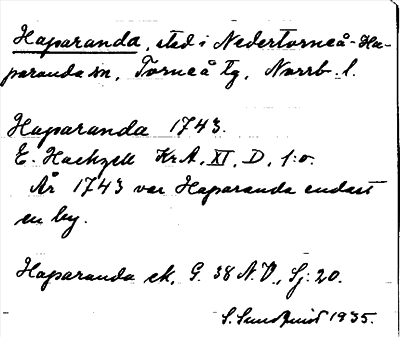 Haparanda, stad i Nedertorneå-Ha-
paranda sn, Torneå tg, Norrb. l.
Haparanda 1743.
E. Hackzell KrA, XI, D, 1:o.
År 1743 var Haparanda endast
en by.
Haparanda ek, G. 38 N.V., Sj: 20.
S. Sundquist 1935.